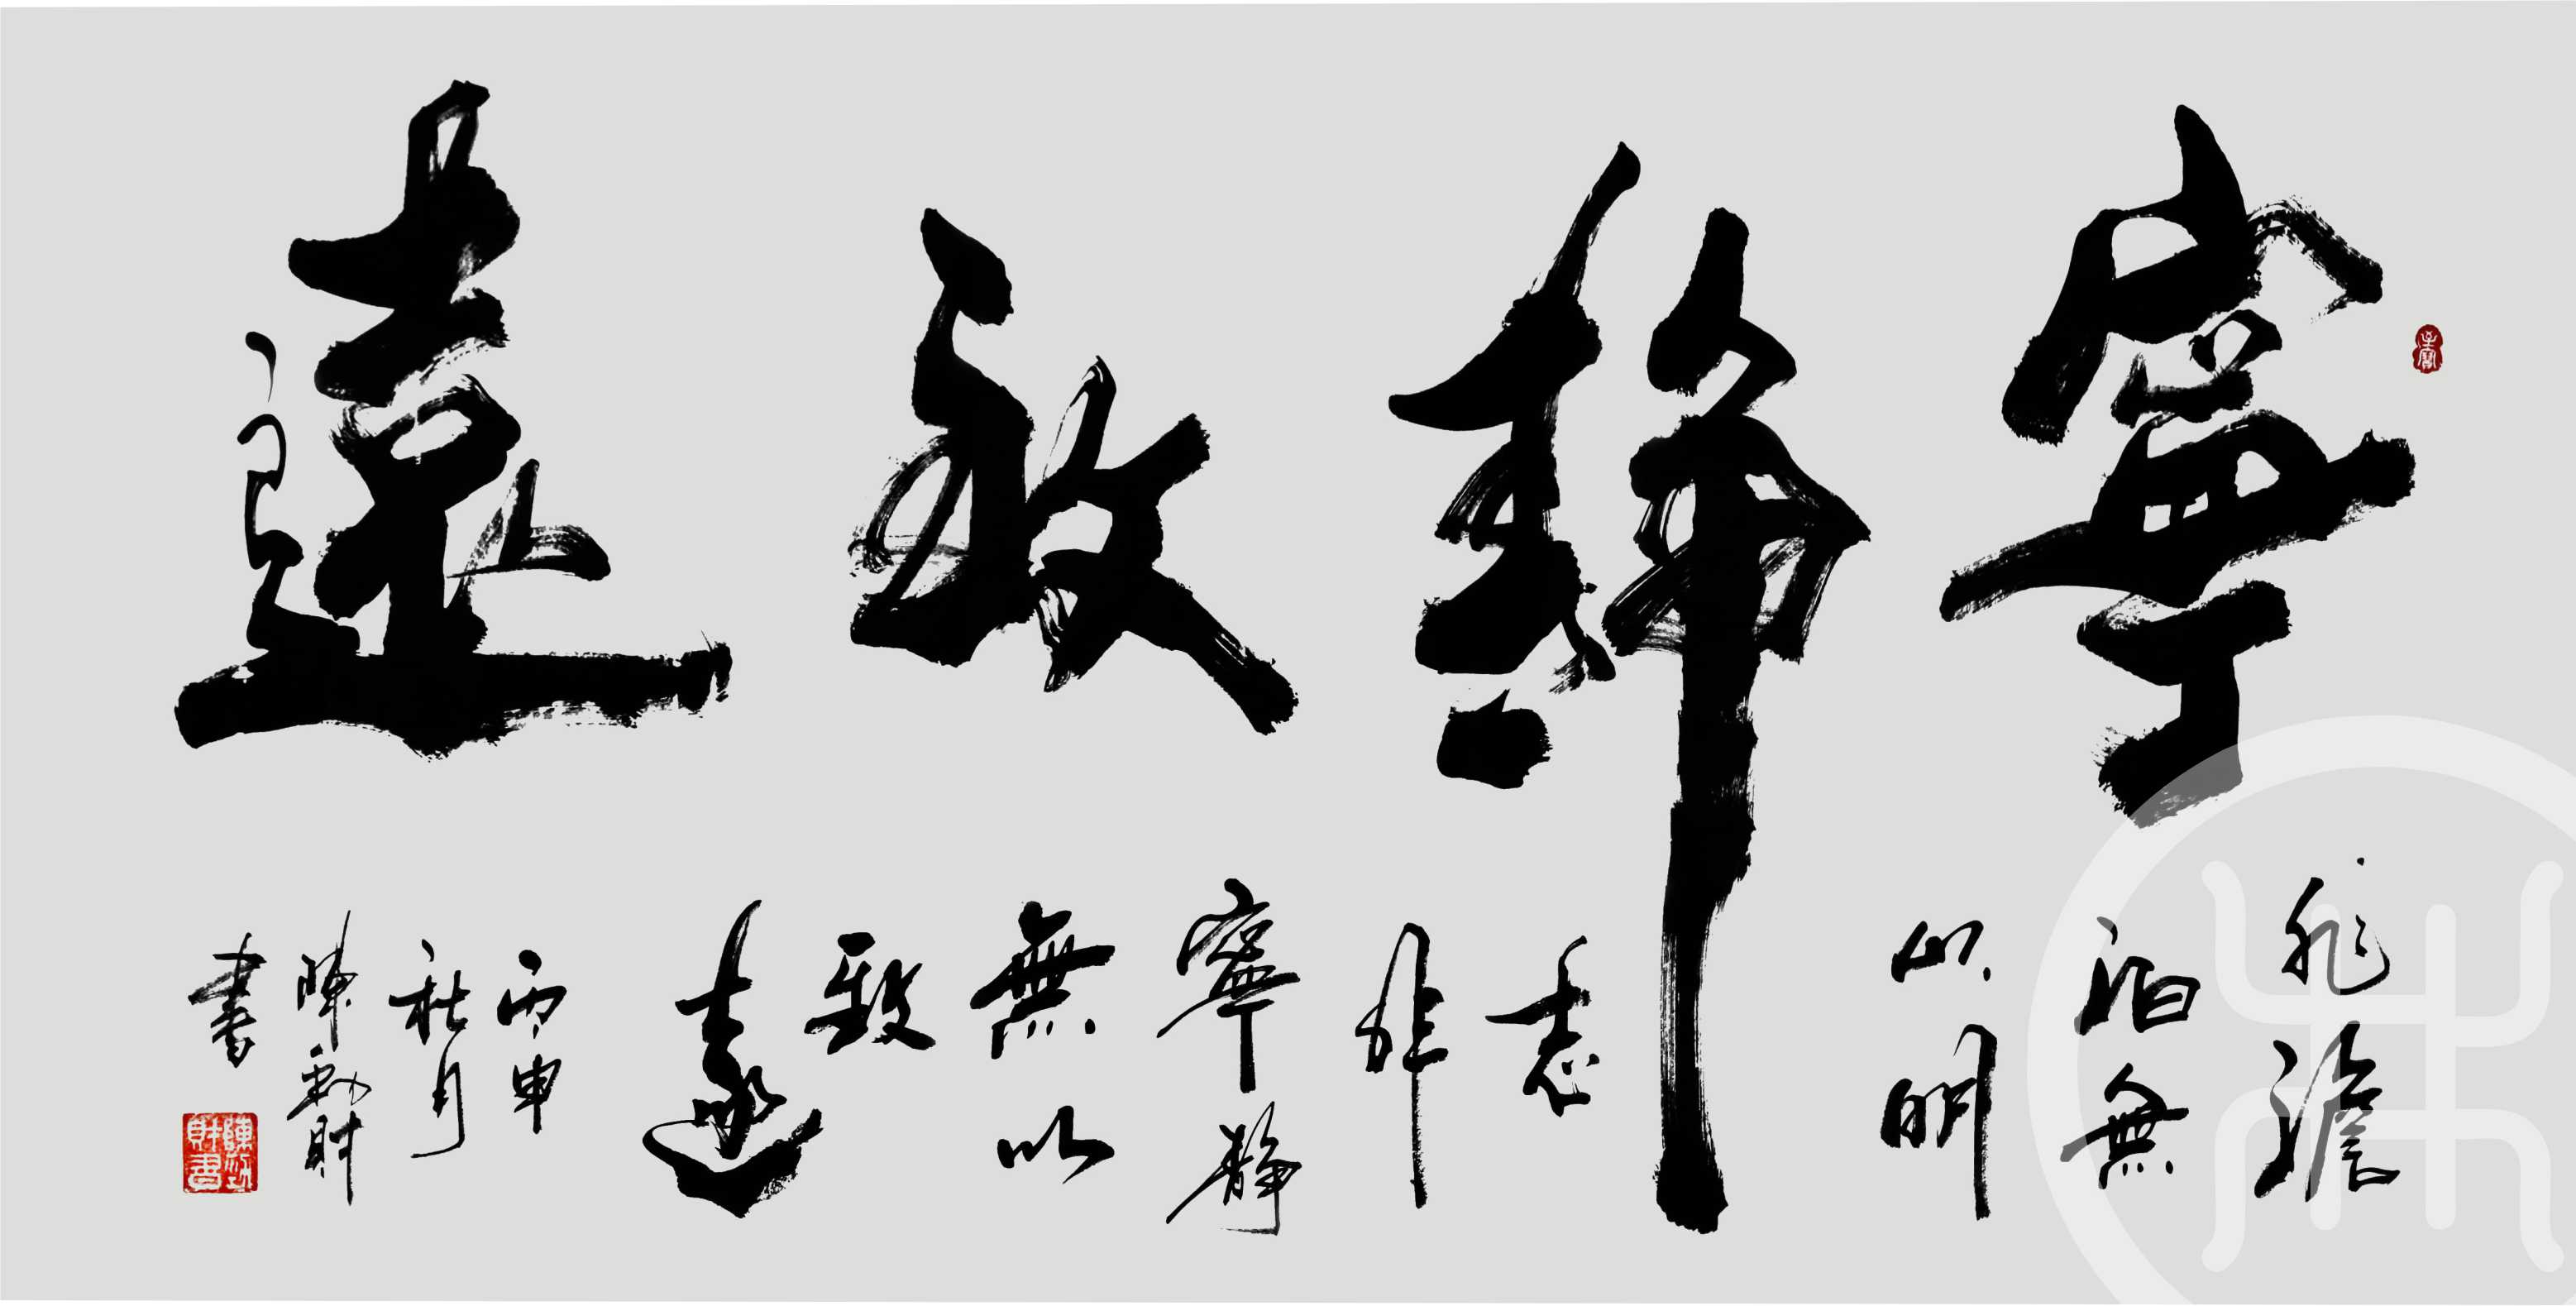 寧靜致遠
非澹
泊無
以明
志
非
寧靜
無以
致
遠
丙申
秋月
陳勁財
書